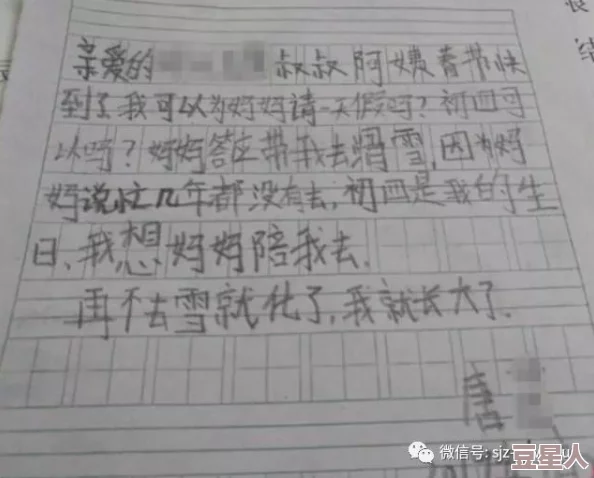 亲爱的 叔叔阿姨春节快
到了我可以为妈妈请一天假吗？初四可
以吗？妈妈答应带我去滑雪,因为妈
妈说忙几年都没有去,初四是我的生
日、我想妈妈陪我去.
再不去雪就化了,我就长大了.
唐
微信号: sjz-
豆星人